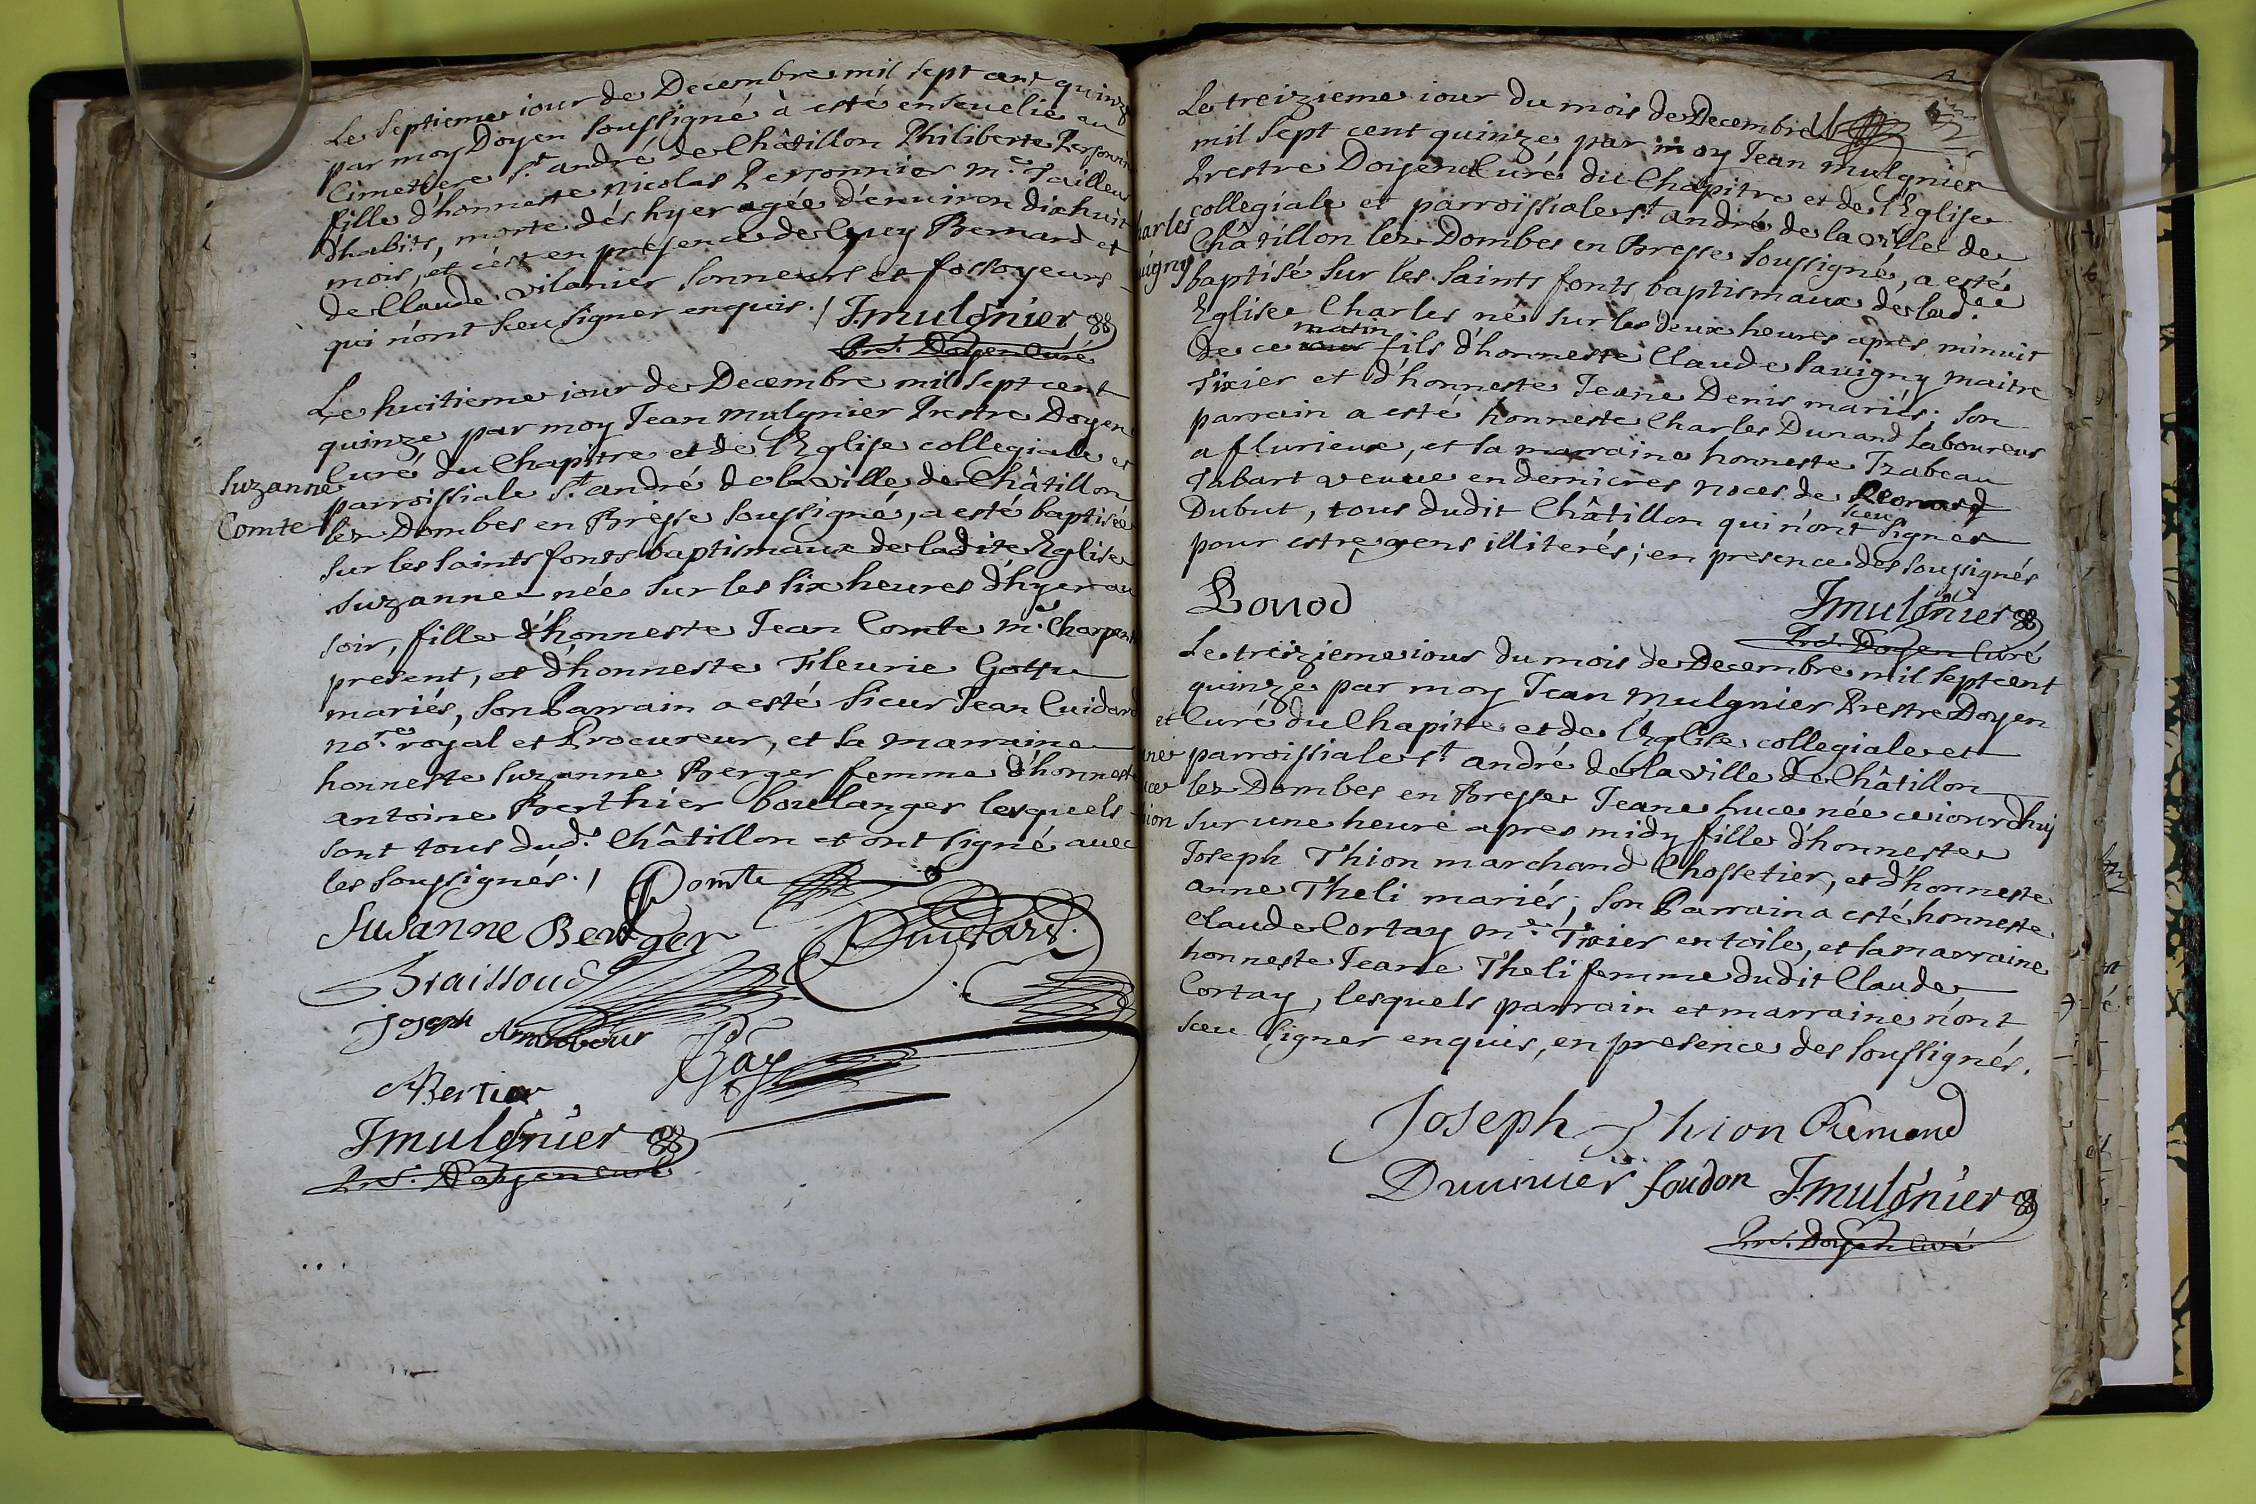 Le Septieme iour de Decembre mil sept cent quinze
par moy Doyen soussigné à esté ensevelie au
Cimettere St. andré de Châtillon Philiberte Perronnier
fille d'honneste nicolas Perronnier me. Tailleur
d'habits, morte dés hyer agée d'environ dixhuit
mois, et c'est en présence de Cuey Bernard et
de Claude vilanier sonneurs et fossoyeurs
qui n'ont sceu signer enquis. /
J. mulgnier
Pre. Doyen Curé
Le huitieme iour de Decembre mil sept cent
quinze par moy Jean mulgnier Prestre Doyen
Curé du Chapitre et de l'Eglise collegiale et
Suzanne
Comte
parroissiale St. andré de la ville de Châtillon
lez Dombes en Bresse soussigné, a esté baptisée
sur les saints fonts baptismaux de ladite Eglise
Suzanne née sur les six heures d'hyer au
soir, fille d'honneste Jean Comte me. Charpen
present, et d'honneste Fleurie Gottu
mariés, son Parrain a esté sieur Jean Cuidard
nore. royal et Procureur, et la marraine
honneste Suzanne Berger femme d'honneste
antoine Berthier boulanger lesquels
sont tous dud. Châtillon et ont signé avec
les soussignés. /
Comte
Susanne Berger
Cuidard
Braissoud
Joseph Armobour
Ray
ABertier
J. mulgnier
Pre. Doyen curé
Le treizieme iour du mois de Decembre
mil sept cent quinze par moy Jean mulgnier
Prestre Doyen Curé du Chapitre et de l'Eglise
collegiale et parroissiale St. andré de la ville de
harles
uigny
Châtillon lez Dombes en Bresse soussigné, a esté
baptisé sur les saints fonts baptismaux de lad.
Eglise Charles né sur les deux heures apres minuit
de ce matin fils d'honneste Claude Sauigny maitre
Tixier et d'honneste Jeane Denis mariés; son
parrain a esté honneste Charles Durand Laboureur
a flurieux, et la marraine honneste Izabeau
Jabart veuue en dernieres noces de Leonard
Dubut, tous dudit Châtillon qui n'ont sceu signer
pour estre gens illiterés; en presence des soussignés
Bouod
J. mulgnier
Pre. Doyen Curé
Le treizieme iour du mois de Decembre mil sept cent
quinze par moy Jean mulgnier Prestre Doyen
et Curé du Chapitre et de l'Eglise collegiale et
ne
uce
hion
parroissiale St andré de la ville de Châtillon
lez Dombes en Bresse Jeane huce née ce iourdhuj
sur une heure apres midy fille d'honneste
Joseph Thion marchand Chossetier, et d'honneste
anne Theli mariés; son Parrain a esté honneste
Claude Cortay me. Tixier en toile, et la marraine
honneste Jeane Theli femme dudit Claude
Cortay, lesquels parrain et marraine n'ont
sceu signer enquis, en presence des soussignés.
Joseph Thion Remond
Duuiuier foudon J. mulgnier
Pre. Doyen Curé